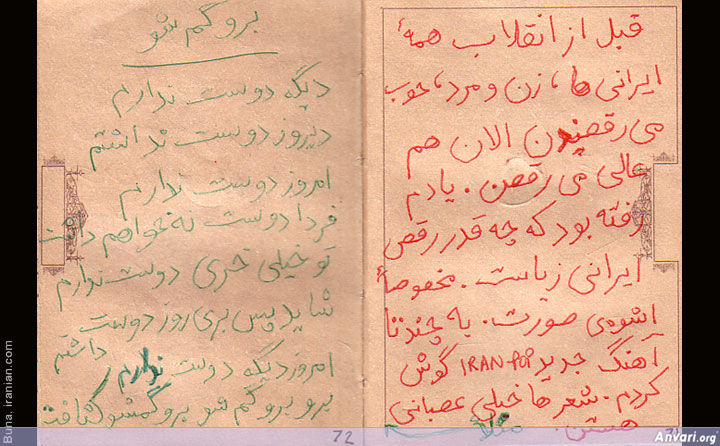 قبل از انقلاب همهٔ
ایرانی ها، زن و مرد، خوب
می رقصیدن الان هم
عالی می رقصن. یادم
رفته بود که چه قدر رقص
ایرانی زیباست. مخصوصاً
عشوه‌ی صورت. به چندتا
آهنگ جدید IRAN-POP گوش
کردم. شعر ها خیلی عصبانی
هستن. مثلاً
برو گم شو
دیگه دوست ندارم
دیروز دوست نداشتم
امروز دوست ندارم
فردا دوست نه نخواهم داشت
تو خیلی خری دوست ندارم
شاید پس پری روز دوست داشتم
امروز دیگه دوست ندارم
برو برو گم شو برو گمشو کثافت
72
Buna, iranian.com
Anvari.org